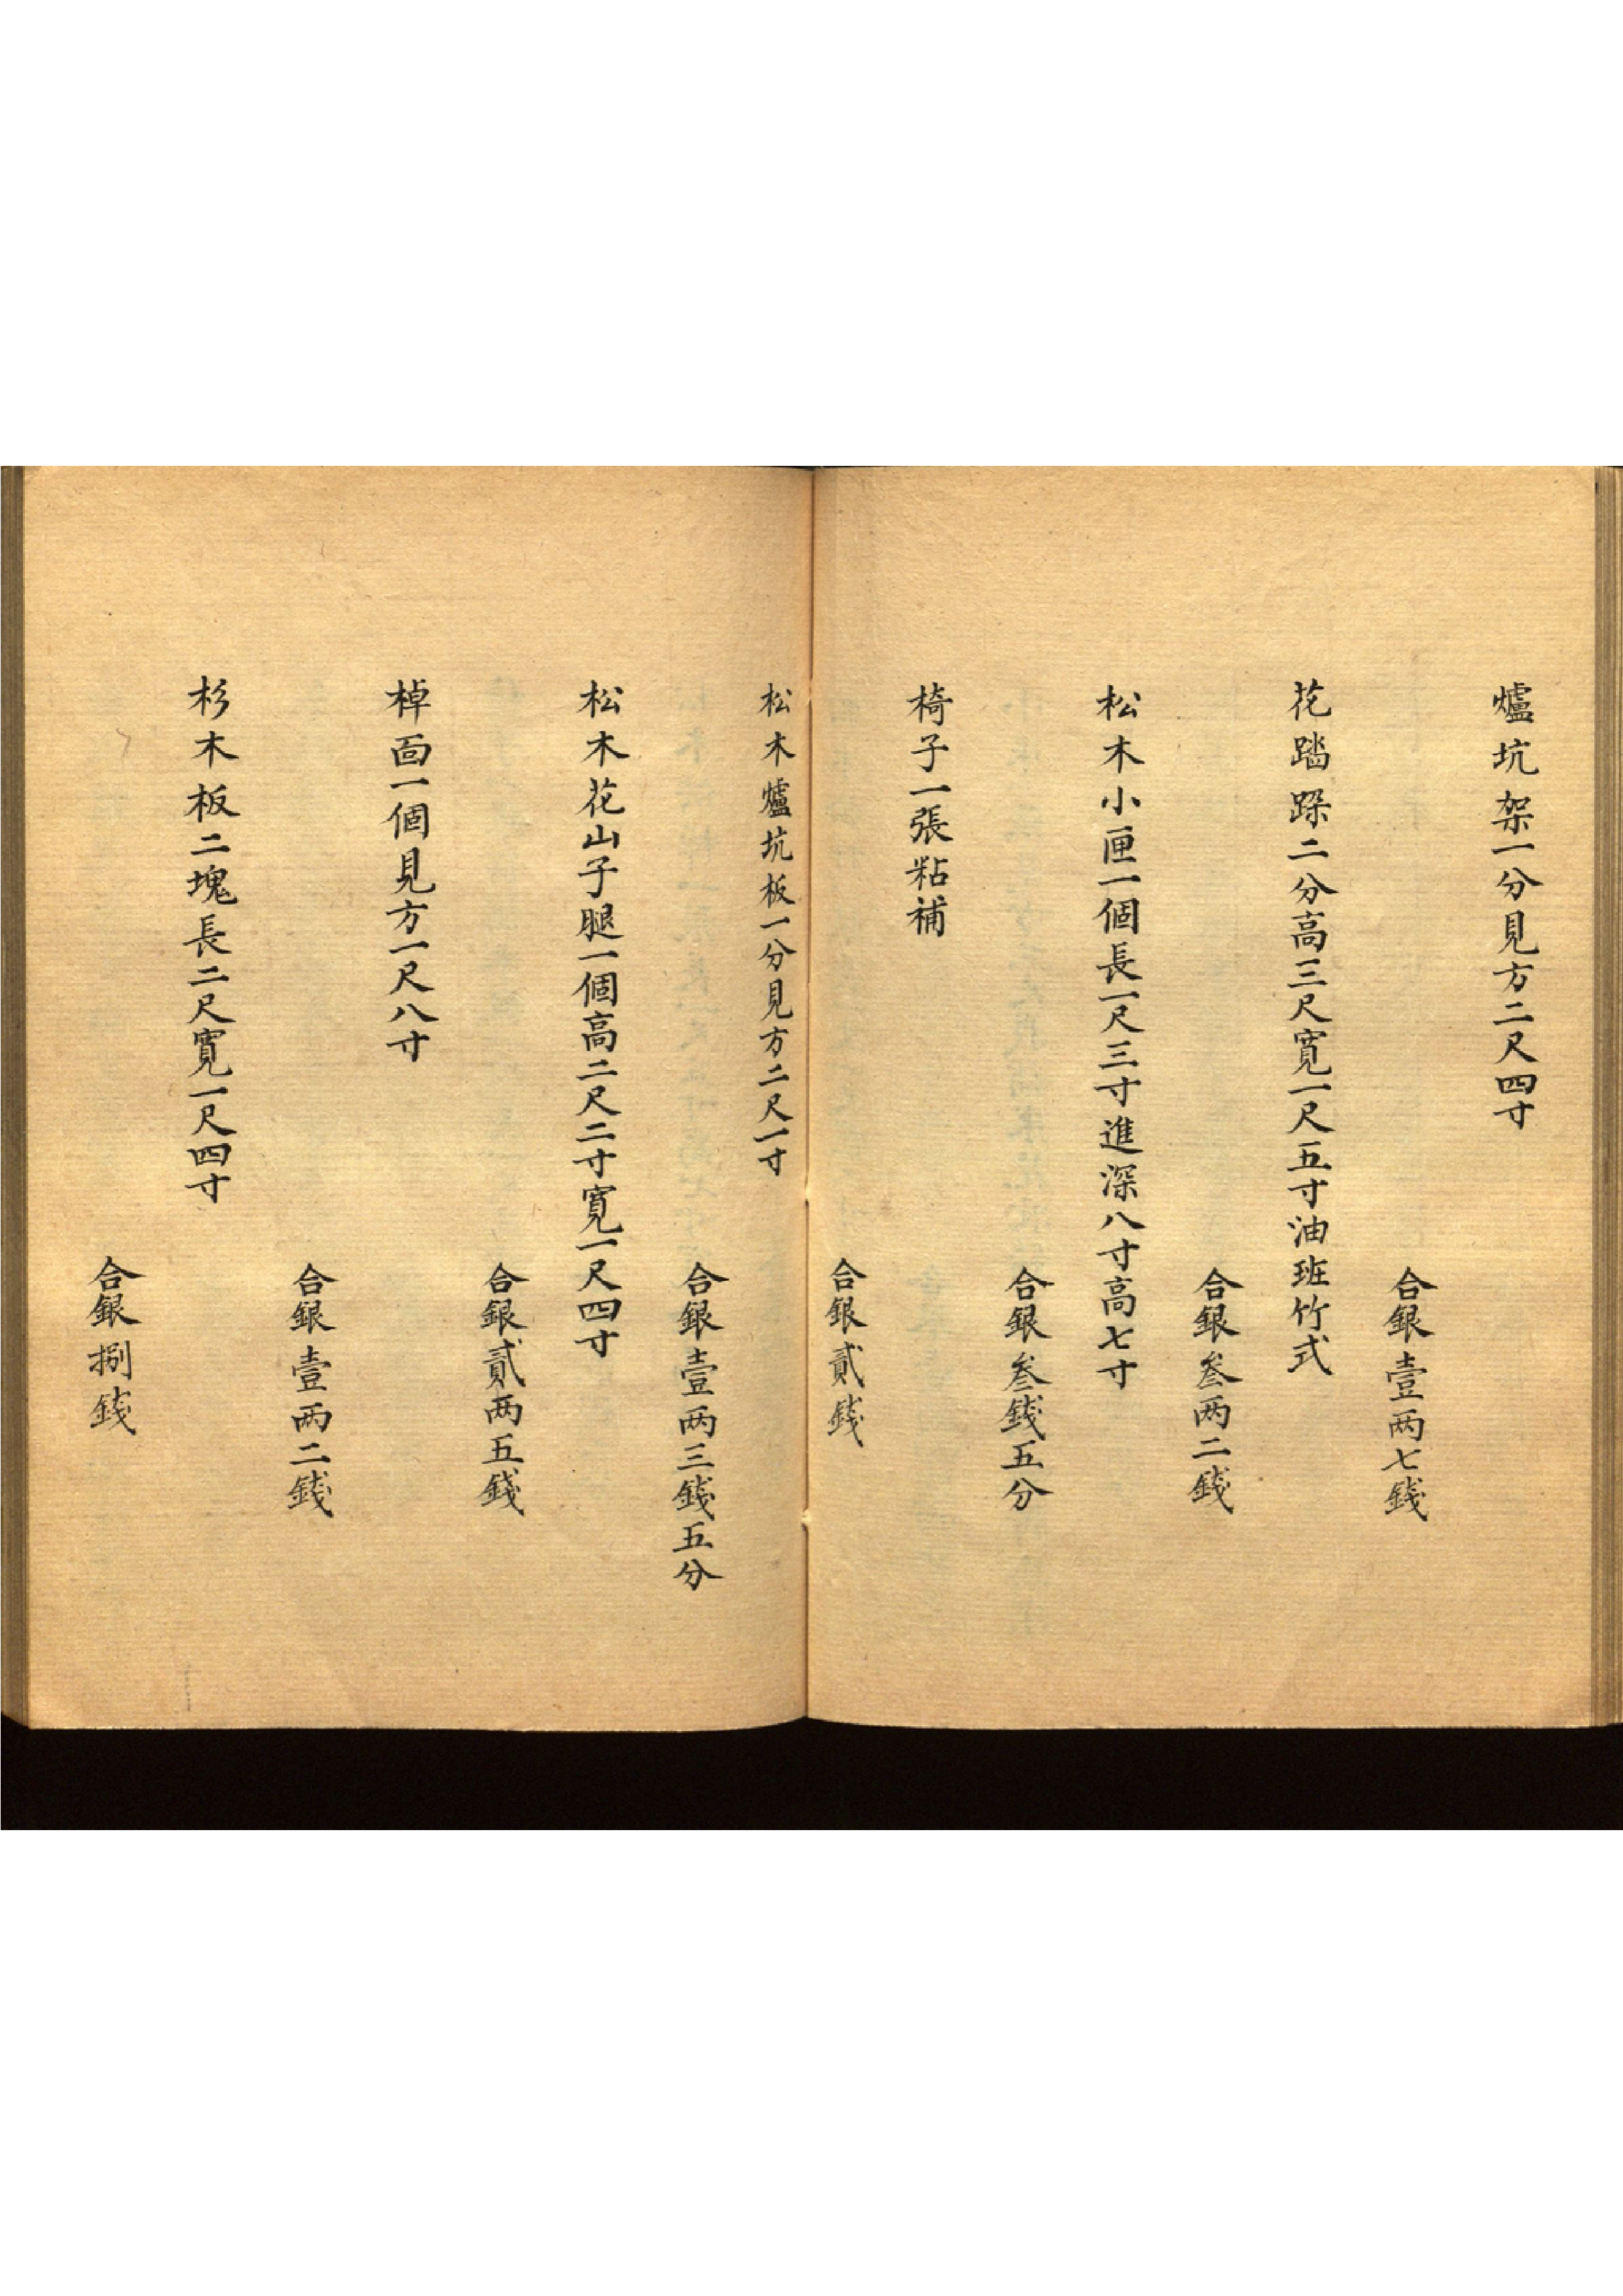 爐坑架一分見方二尺四寸
合銀壹两七錢
花踏跺二分高三尺寬一尺五寸油班竹式
合銀叁两二錢
松木小匣一個長一尺三寸進深八寸高七寸
合銀叁錢五分
椅子一張粘補
合銀貳錢
松木爐坑板一分見方二尺一寸
合銀壹两三錢五分
松木花山子腿一個高二尺二寸寬一尺四寸
合銀貳两五錢
棹面一個見方一尺八寸
合銀壹两二錢
杉木板二塊長二尺寬一尺四寸
合銀捌錢